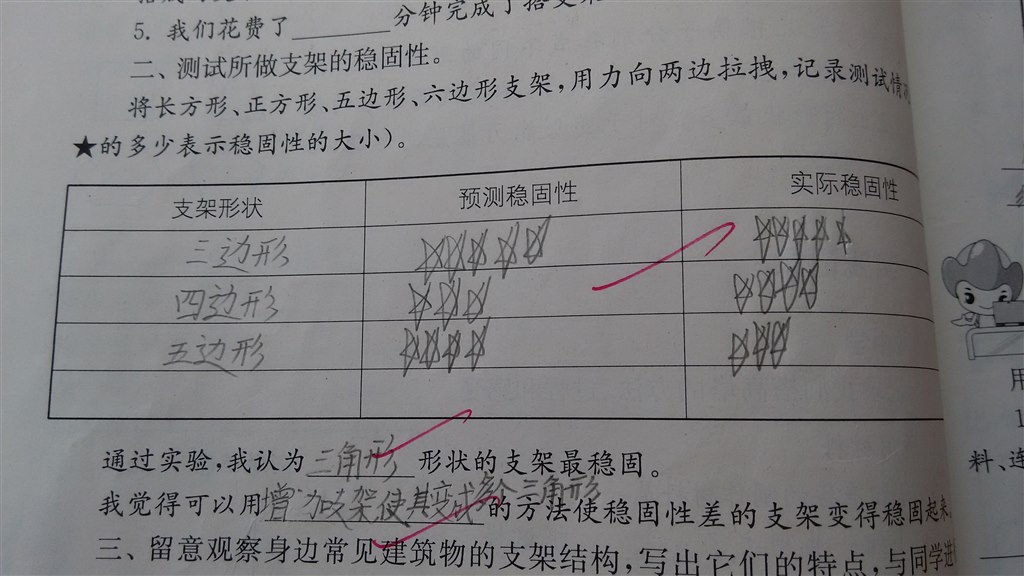 5. 我们花费了________分钟完成了搭支架
二、测试所做支架的稳固性。
将长方形、正方形、五边形、六边形支架，用力向两边拉拽，记录测试情
★的多少表示稳固性的大小）。
支架形状 预测稳固性 实际稳固性
三边形 ☆☆☆☆☆ ☆☆☆☆☆
四边形 ☆☆☆ ☆☆☆☆
五边形 ☆☆☆☆ ☆☆☆
通过实验，我认为三角形形状的支架最稳固。
我觉得可以用增加支架使其变成多个三角形的方法使稳固性差的支架变得稳固起来
三、留意观察身边常见建筑物的支架结构，写出它们的特点，与同学进
用
1
料、连